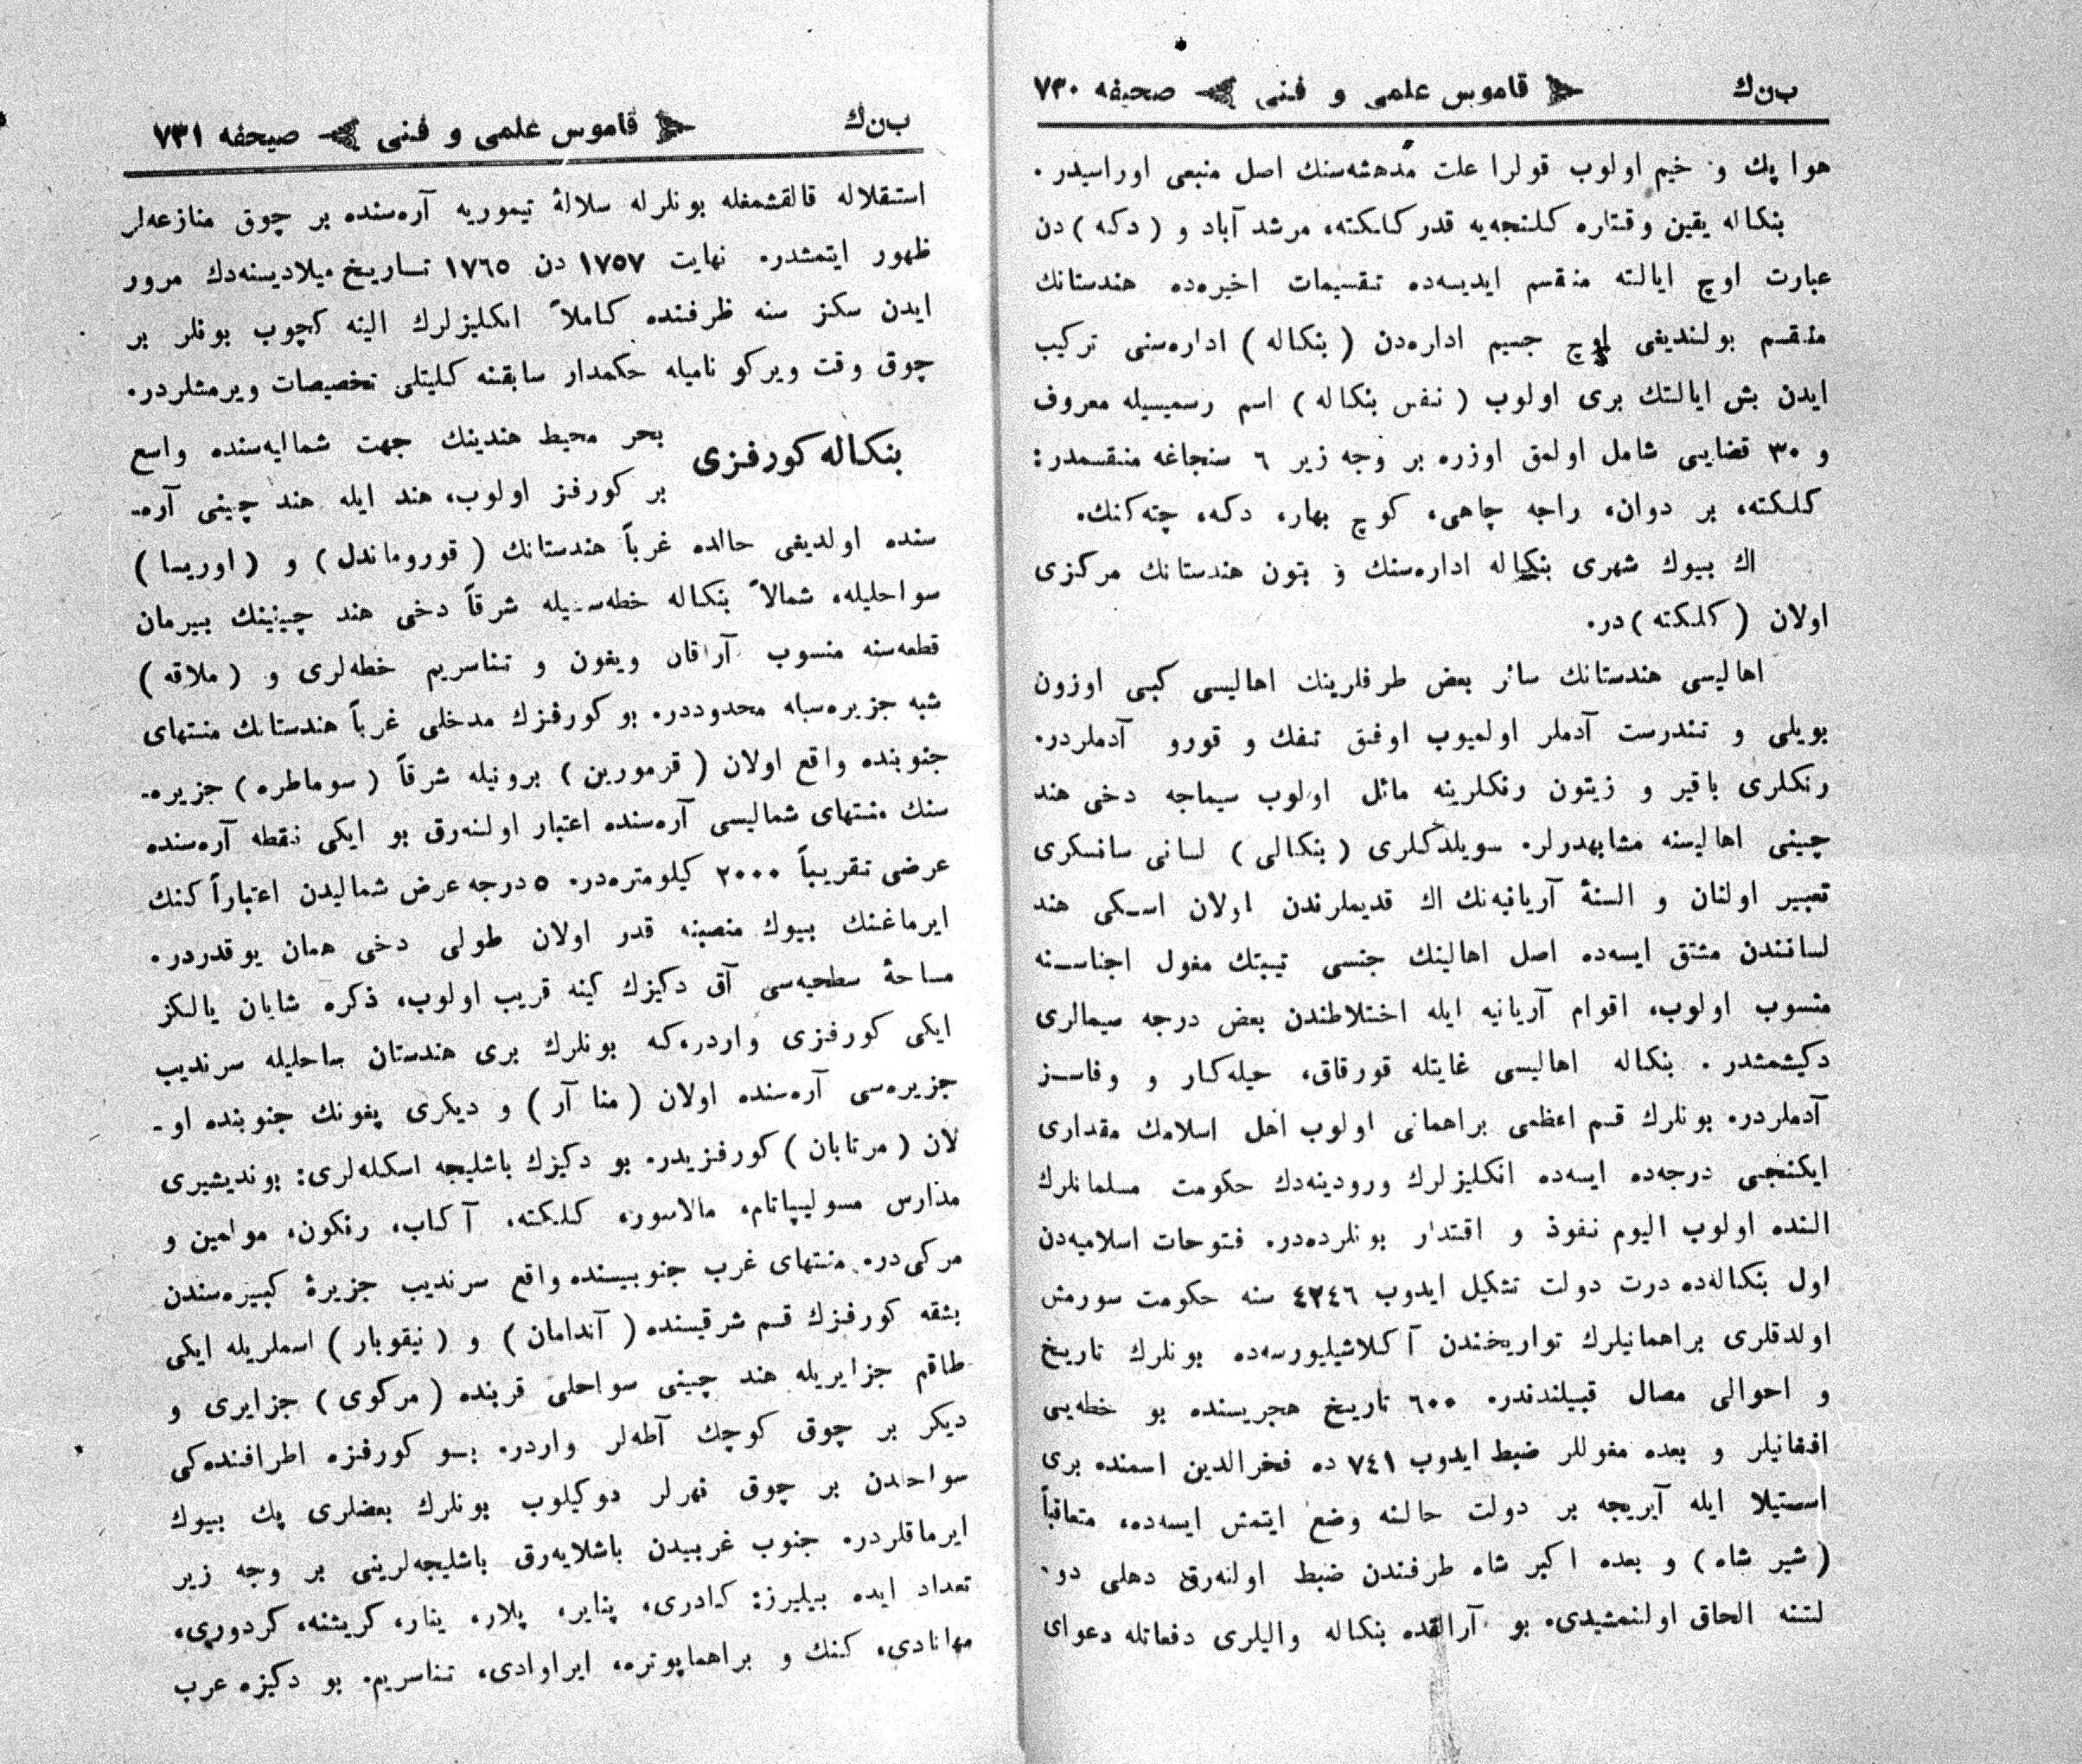 ب ن ك قاموس علمی و فنی صحيفه ٧٣٠
هوا پك و خيم اولوب قولرا علت مدهشه‌سنك اصل منبعی اوراسيدر .
بنكاله يقين وقتلره كلنجه‌يه قدر كلكته، مرشد آباد و ( دكه ) دن
عبارت اوچ ايالته منقسم ايديسه‌ده تقسيمات اخيره‌ده هندستانك
منقسم بولنديغی اوچ جسيم اداره‌دن ( بنكاله ) اداره‌سنی تركيب
ايدن بش ايالتك بری اولوب ( نفس بنكاله ) اسم رسميسيله معروف
و ٣٠ قضایی شامل اولمق اوزره بر وجه زير ٦ سنجاغه منقسمدر :
كلكته، بر دوان، راجه چاهی، كوچ بهار، دكه، چته كنك.
اك بيوك شهری بنكاله اداره‌سنك و بتون هندستانك مركزی
اولان ( كلكته ) در.
اهاليسی هندستانك سائر بعض طرفلرينك اهاليسی كبی اوزون
بويلی و تندرست آدملر اولميوب اوفق تفك و قورو آدملردر.
رنكلری باقير و زيتون رنكلرينه مائل اولوب سيماجه دخی هند
چينی اهاليسنه مشابهدرلر. سويلدكلری ( بنكالی ) لسانی سانسكری
تعبير اولنان و السنهٔ آريانيه‌نك اك قديملرندن اولان اسكی هند
لسانندن مشتق ايسه‌ده اصل اهالينك جنسی تيبتك مغول اجناسنه
منسوب اولوب، اقوام آريانيه ايله اختلاطندن بعض درجه سيمالری
دكيشمشدر . بنكاله اهاليسی غايتله قورقاق، حيله‌كار و وفاسز
آدملردر. بونلرك قسم اعظمی براهمانی اولوب اهل اسلامك مقداری
ايكنجی درجه‌ده ايسه‌ده انكليزلرك ورودينه‌دك حكومت مسلمانلرك
النده اولوب اليوم نفوذ و اقتدار بونلرده‌در. فتوحات اسلاميه‌دن
اول بنكاله‌ده درت دولت تشكيل ايدوب ٤٢٤٦ سنه حكومت سورمش
اولدقلری براهمانيلرك تواريخندن آكلاشيليورسه‌ده بونلرك تاريخ
و احوالی مصال قبيلندندر. ٦٠٠ تاريخ هجريسنده بو خطه‌یی
افغانيلر و بعده مغوللر ضبط ايدوب ٧٤١ ده فخرالدين اسمنده بری
استيلا ايله آيريجه بر دولت حالنه وضع ايتمش ايسه‌ده، متعاقباً
( شير شاه ) و بعده اكبر شاه طرفندن ضبط اولنه‌رق دهلی دو-
لتنه الحاق اولنمشيدی. بو آرالقده بنكاله واليلری دفعاتله دعوای
ب ن ك قاموس علمی و فنی صيحفه ٧٣١
استقلاله قالقشمغله بونلرله سلالهٔ تيموريه آره‌سنده بر چوق منازعه‌لر
ظهور ايتمشدر. نهايت ١٧٥٧ دن ١٧٦٥ تاريخ ميلاديسنه‌دك مرور
ايدن سكز سنه ظرفنده كاملاً انكليزلرك الينه كچوب بونلر بر
چوق وقت ويركو ناميله حكمدار سابقنه كليتلی تخصيصات ويرمشلردر.
بنكاله كورفزی بحر محيط هندينك جهت شماليه‌سنده واسع
بر كورفز اولوب، هند ايله هند چينی آره-
سنده اولديغی حالده غرباً هندستانك ( قوروماندل ) و ( اوريسا )
سواحليله، شمالاً بنكاله خطه‌سيله شرقاً دخی هند چينينك بيرمان
قطعه‌سنه منسوب آراقان ويغون و تناسريم خطه‌لری و ( ملاقه )
شبه جزيره‌سيله محدوددر. بو كورفزك مدخلی غرباً هندستانك منتهای
جنوبنده واقع اولان ( قرمورين ) برونيله شرقاً ( سوماطره ) جزيره-
سنك منتهای شماليسی آره‌سنده اعتبار اولنه‌رق بو ايكی نقطه آره‌سنده
عرضی تقريباً ٢٠٠٠ كيلومتره‌در. ٥ درجه عرض شماليدن اعتباراً كنك
ايرماغنك بيوك منصبنه قدر اولان طولی دخی همان بو قدردر.
مساحهٔ سطحيه‌سی آق دكيزك كينه قريب اولوب، ذكره شايان يالكز
ايكی كورفزی واردركه بونلرك بری هندستان ساحليله سرنديب
جزيره‌سی آره‌سنده اولان ( منا آر ) و ديكری پغونك جنوبنده او-
لان ( مرتابان ) كورفزيدر. بو دكيزك باشليجه اسكله‌لری : بونديشيری
مذارس مسوليپاتام، مالاسور، كلكته، آكاب، رنكون، مولمين و
مركی‌در. منتهای غرب جنوبيسنده واقع سرنديب جزيرهٔ كبيره‌سندن
بشقه كورفزك قسم شرقيسنده ( آندامان ) و ( نيقوبار ) اسملريله ايكی
طاقم جزايريله هند چينی سواحلی قربنده ( مركوی ) جزايری و
ديكر بر چوق كوچك آطه‌لر واردر. بو كورفزه اطرافنده‌كی
سواحلدن بر چوق نهرلر دوكيلوب بونلرك بعضلری پك بيوك
ايرماقلردر. جنوب غربيدن باشلايه‌رق باشليجه‌لرينی بر وجه زير
تعداد ايده بيليرز : كادری، پناير، پلار، ينار، كريشنه، كردوری،
مهانادی، كنك و براهماپوتره، ايراوادی، تناسريم. بو دكيزه عرب